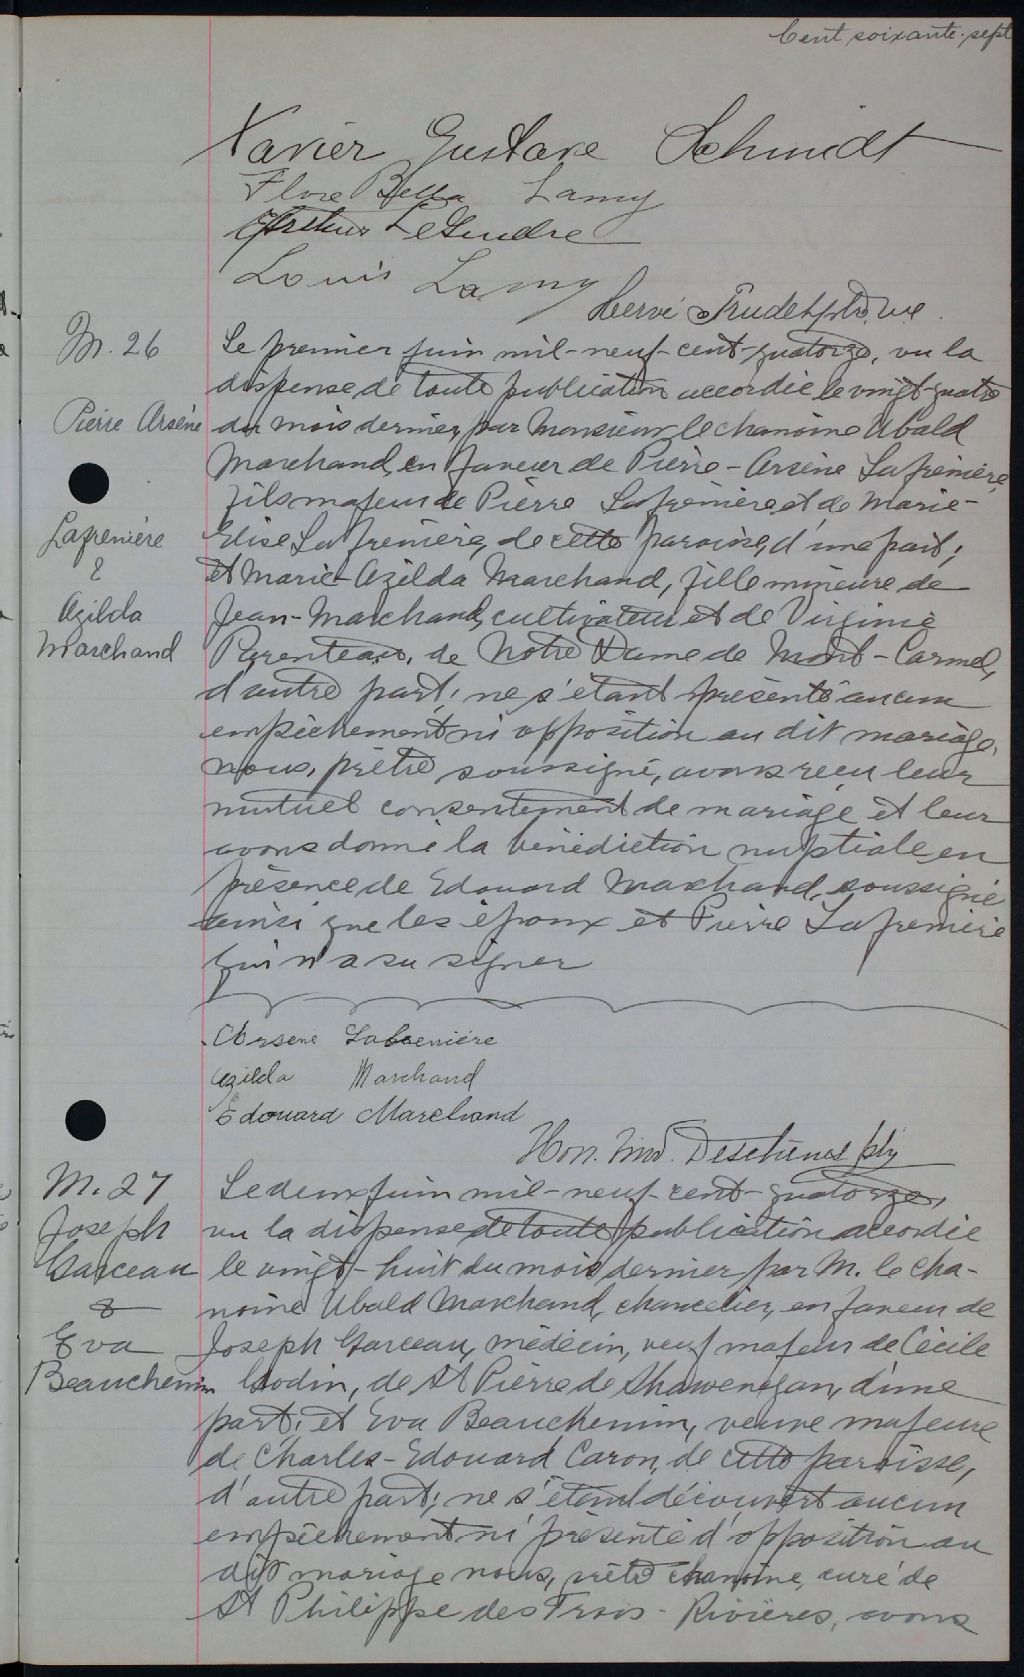 Cent soixante-sept
Xavier Gustave Schmidt
Flore Bella Lamy
Arthur LeGendre
Louis Lamy
Hervé Trudel ptre. vic.
M. 26
Pierre Arsène
Lafrenière
&
Azilda
Marchand
Le premier juin mil-neuf-cent-quatorze, vu la
dispense de toute publication accordée le vingt-quatre
du mois dernier, par Monsieur le chanoine Ubald
Marchand, en faveur de Pierre-Arsène Lafrenière,
fils majeur de Pierre Lafrenière, et de Marie-
Elise Lafrenière, de cette paroisse, d'une part;
et Marie-Azilda Marchand, fille mineure de
Jean Marchand, cultivateur et de Virginie
Parenteau, de Notre Dame de Mont-Carmel,
d'autre part; ne s'étant présenté aucun
empêchement ni opposition au dit mariage,
nous, prêtre soussigné, avons reçu leur
mutuel consentement de mariage et leur
avons donné la bénédiction nuptiale en
présence de Edouard Marchand, soussigné
ainsi que les époux et Pierre Lafrenière
qui n'a su signer
Arsene Lafreniére
Azilda Marchand
Edouard Marchand
Deschênes ptr
M. 27
Joseph
Garceau
&
Eva
Beauchemin
Le deux juin mil-neuf-cent-quatorze,
vu la dispense de toute publication accordée
le vingt-huit du mois dernier par M. le cha-
noine Ubald Marchand, chancelier, en faveur de
Joseph Garceau, médecin, veuf majeur de Cécile
Godin, de St Pierre de Shawenegan, d'une
part; et Eva Beauchemin, veuve majeure
de Charles-Edouard Caron, de cette paroisse,
d'autre part; ne s'étant découvert aucun
empêchement ni présenté d'opposition au
dit mariage nous, prêtre chanoine, curé de
St Philippe des Trois-Rivières, avons